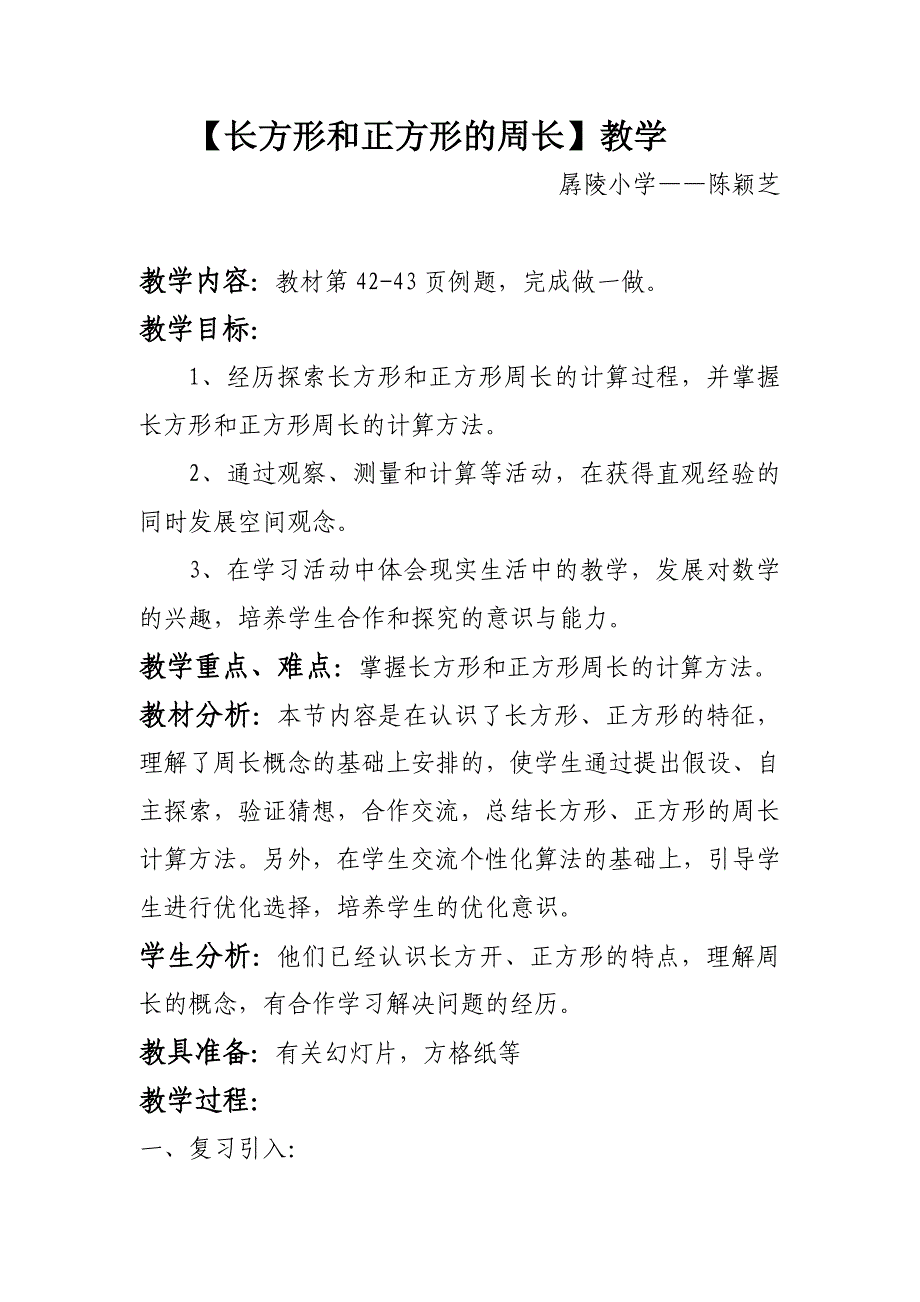 【长方形和正方形的周长】教学
孱陵小学——陈颖芝
教学内容：教材第 42-43 页例题，完成做一做。
教学目标：
1、经历探索长方形和正方形周长的计算过程，并掌握
长方形和正方形周长的计算方法。
2、通过观察、测量和计算等活动，在获得直观经验的
同时发展空间观念。
3、在学习活动中体会现实生活中的教学，发展对数学
的兴趣，培养学生合作和探究的意识与能力。
教学重点、难点：掌握长方形和正方形周长的计算方法。
教材分析：本节内容是在认识了长方形、正方形的特征，
理解了周长概念的基础上安排的，使学生通过提出假设、自
主探索，验证猜想，合作交流，总结长方形、正方形的周长
计算方法。另外，在学生交流个性化算法的基础上，引导学
生进行优化选择，培养学生的优化意识。
学生分析：他们已经认识长方开、正方形的特点，理解周
长的概念，有合作学习解决问题的经历。
教具准备：有关幻灯片，方格纸等
教学过程：
一、复习引入：